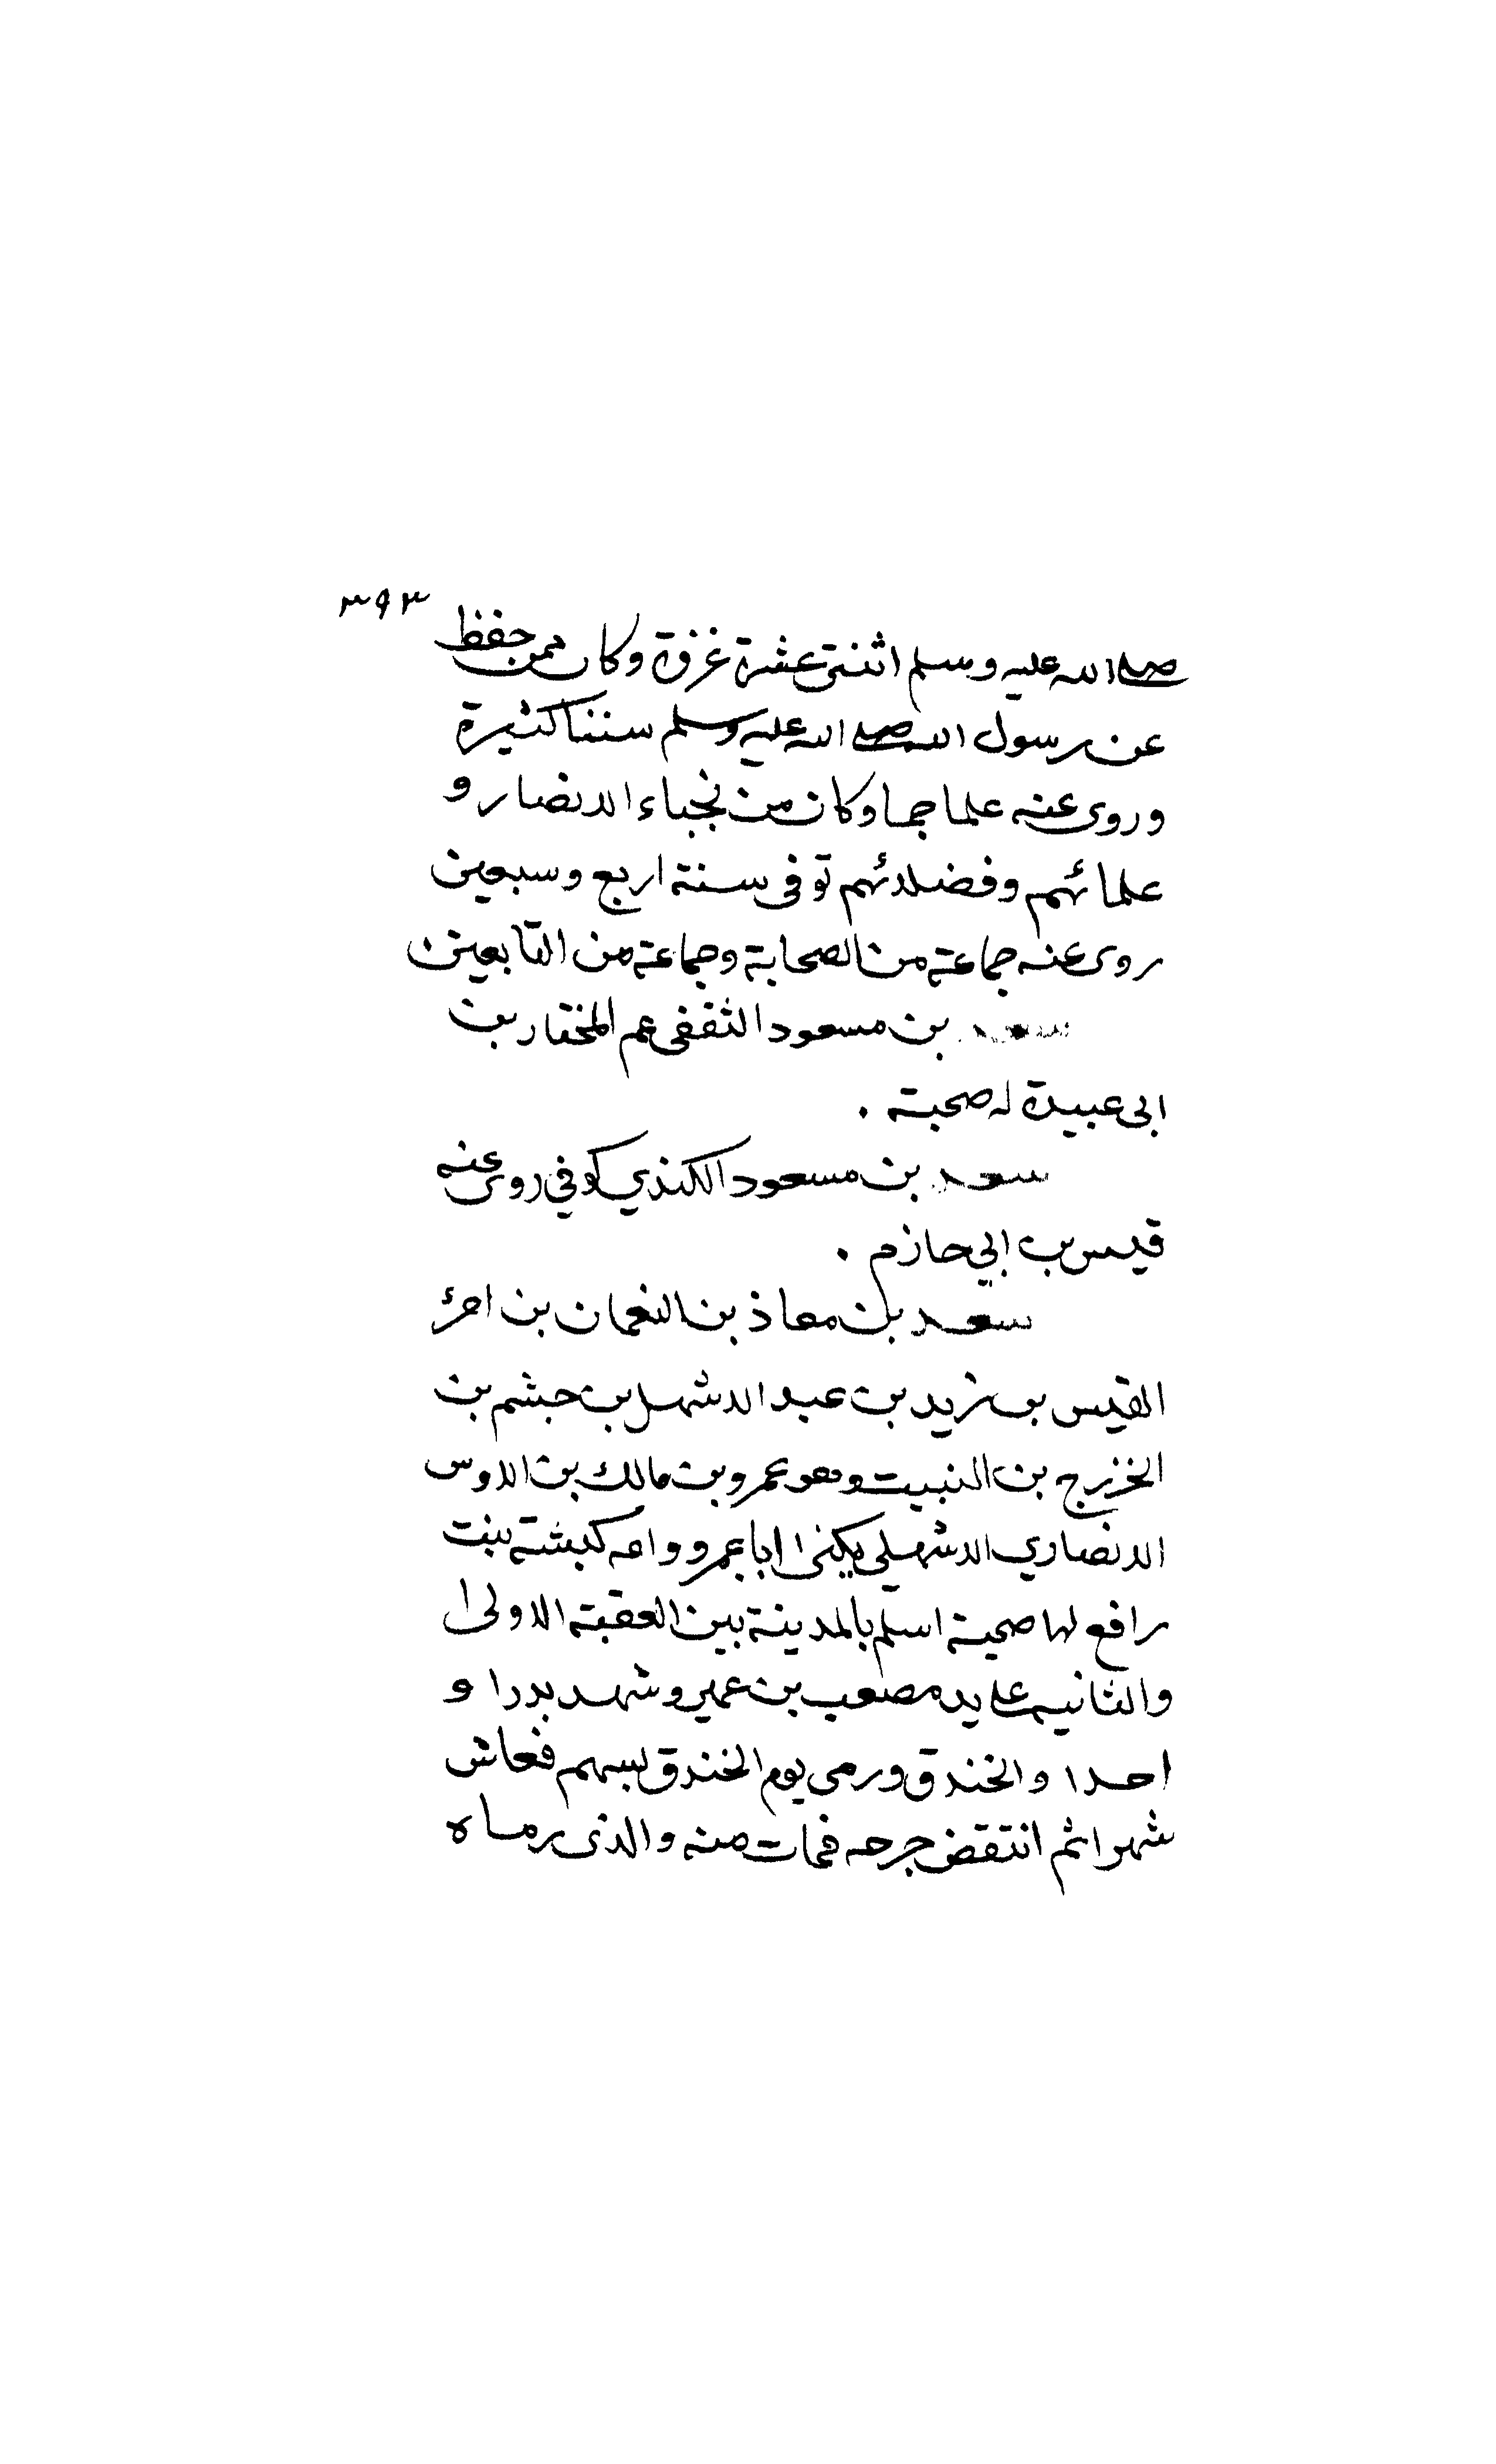 ٣٩٣
صلى الله عليه وسلم اثنتى عشرة غزوة وكان ممن حفظ
عن رسول الله صلى الله عليه وسلم سننا كثيرة
وروى عنه علما جما وكان من نجباء الانصار و
علمائهم وفضلائهم توفى سنة اربع وسبعين
روى عنه جماعة من الصحابة وجماعة من التابعين
سعد بن مسعود الثقفى عم المختار بن
ابى عبيدة له صحبة .
سعد بن مسعود الكندي كوفي روى عنه
قيس بن ابي حازم .
سعد بن معاذ بن النعمان بن امرئ
القيس بن زيد بن عبد الاشهل بن جشم بن
الخزرج بن النبيت وهو عمرو بن مالك بن الاوس
الانصاري الاشهلي يكنى ابا عمرو وامه كبشة بنت
رافع لها صحبة اسلم بالمدينة بين العقبة الاولى
والثانيه على يد مصعب بن عمير وشهد بدرا و
احدا والخندق ورمى يوم الخندق بسهم فعاش
شهرا ثم انتقض جرحه فمات منه والذى رماه